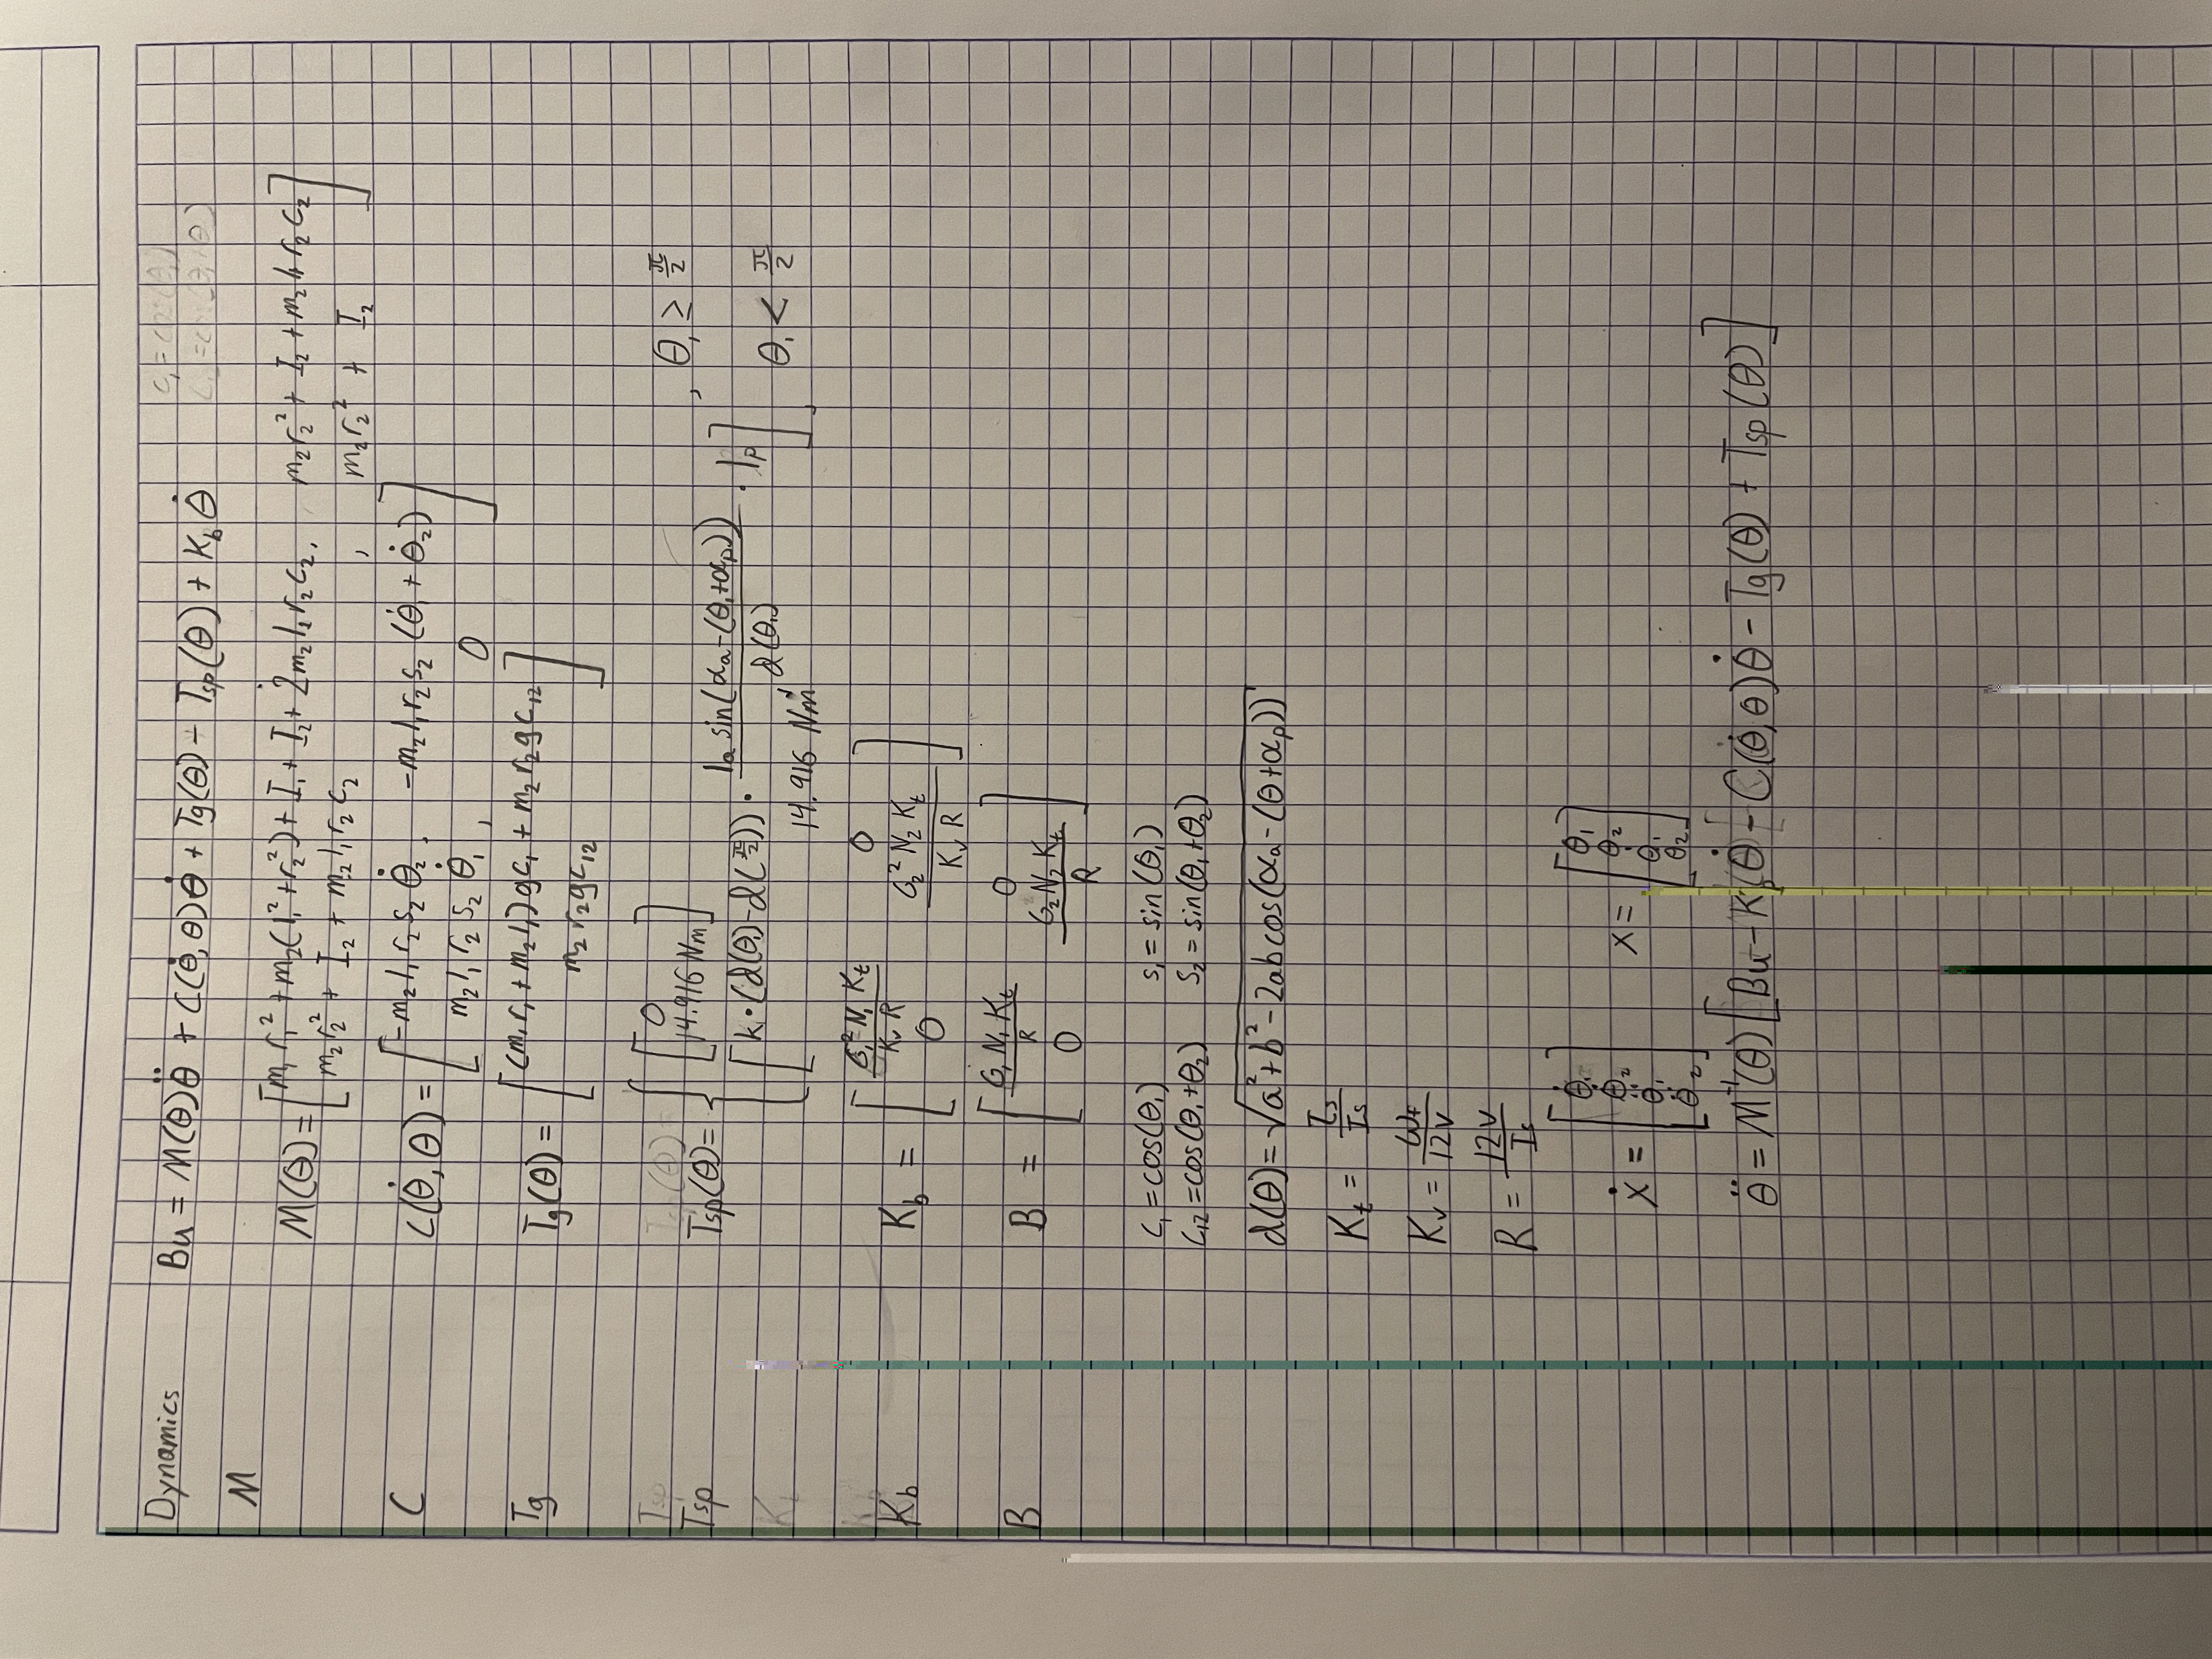 Dynamics Bu = M(θ)θ̈ + C(θ̇, θ)θ̇ + Tg(θ) - Tsp(θ) + K_b θ̇
c₁ = cos(θ₁)
M
M(θ) = [m₁r₁² + m₂(l₁² + r₂²) + I₁ + I₂ + 2m₂l₁r₂c₂, m₂r₂² + I₂ + m₂l₁r₂c₂
m₂r₂² + I₂ + m₂l₁r₂c₂, m₂r₂² + I₂]
C C(θ̇, θ) = [-m₂l₁r₂s₂θ̇₂, -m₂l₁r₂s₂(θ̇₁ + θ̇₂)
m₂l₁r₂s₂θ̇₁, 0]
Tg Tg(θ) = [(m₁r₁ + m₂l₁)gc₁ + m₂r₂gc₁₂
m₂r₂gc₁₂]
Tsp Tsp(θ) =
Tsp Tsp(θ) = { [0
14.916 Nm] , θ₁ ≥ π/2
[k·(d(θ₁) - d(π/2))· l_a sin(α_a - (θ₁ + α_p)) / d(θ₁) · l_p
14.916 Nm], θ₁ < π/2
K_b K_b = [G₁²N₁K_t / K_v R 0
0 G₂²N₂K_t / K_v R]
B B = [G₁N₁K_t / R 0
0 G₂N₂K_t / R]
c₁ = cos(θ₁) s₁ = sin(θ₁)
c₁₂ = cos(θ₁ + θ₂) s₂ = sin(θ₁ + θ₂)
d(θ) = √(a² + b² - 2ab cos(α_a - (θ + α_p)))
K_t = τ_s / I_s
K_v = ω_f / 12V
R = 12V / I_s
ẋ = [θ̇₁ θ̇₂ θ̈₁ θ̈₂] x = [θ₁ θ₂ θ̇₁ θ̇₂]
θ̈ = M⁻¹(θ)[Bu - K_b(θ̇ - C(θ̇, θ)θ̇ - Tg(θ) + Tsp(θ)]